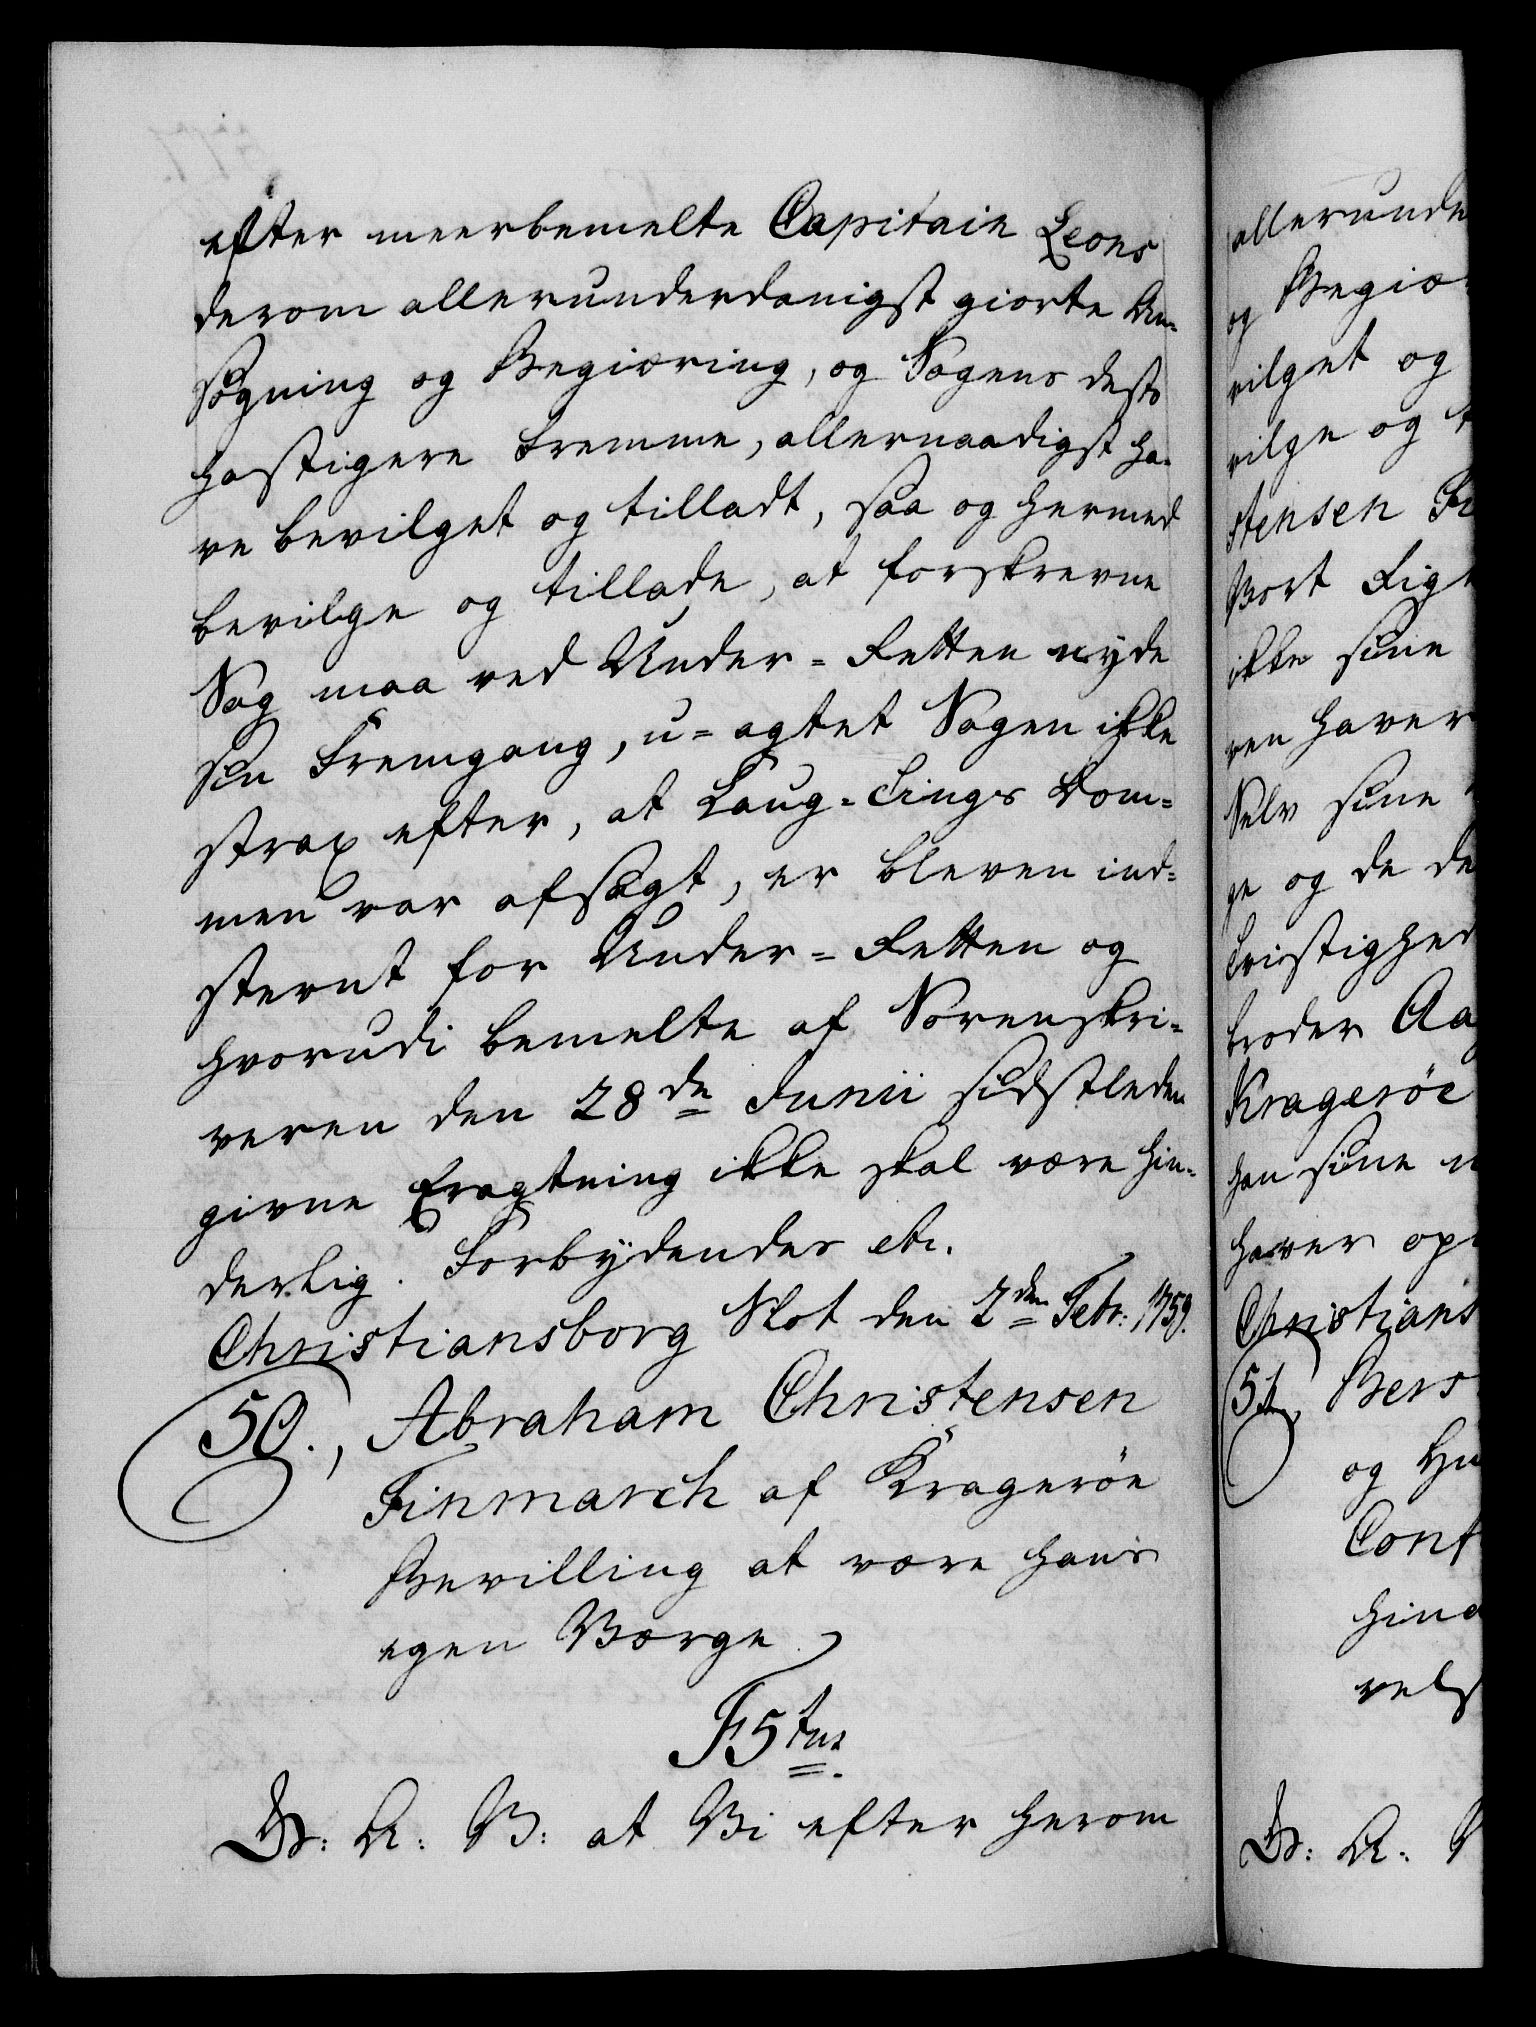 efter meerbemelte Capitain Leons
derom allerunderdanigst giorte An-
søgning og Begiæring, og Sagens dest
hastigere Fremme, allernaadigst ha-
ve bevilget og tilladt, saa og hermed
bevilge og tillade, at forskrevne
Sag maa ved Under-Retten nyde
sin Fremgang, u-agtet Sagen ikke
strax efter, at Laug-Tings Dom-
men var afsagt, er bleven ind-
stevnt for Under-Retten og
hvorudi bemelte af Sorenskri-
veren den 28de Junii sidstleden
givne Eragtning ikke skal være hin-
derlig. Forbydendes etc.
Christiansborg Slot den 2den Febr: 1759.
50., Abraham Christensen
Finmarch af Kragerøe
Bevilling at være hans
egen Værge
F5tus
Gr: A: V: at Vi efter herom
allerunde
og Begiæ
vilget og
vilge og t
stensen Fi
Vort Rig
ikke sine
ren haver
Selv sine
ge og de de
broder Aa
Kragerøe
han sine
haver op
Christians
51, Bers
og Hu
Conf
hina
vels
Gr: A: V